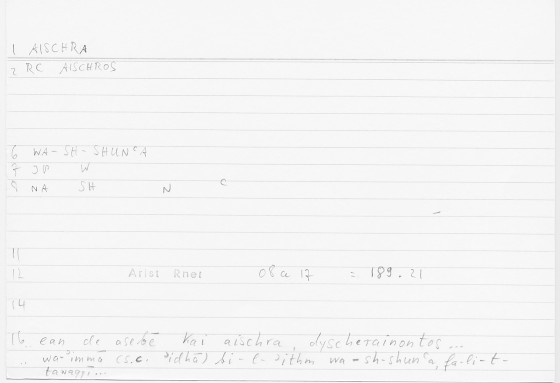 1 AISCHRA
2 RC AISCHROS
6 WA-SH-SHUNᶜA
7 JP W
8 NA SH N C
11
12 Arist Rhet 08a17 = 189.21
14
16 ean de asebē kai aischra, dyscherainontos...
.. wa-ʾimmā (s.c. ʾidhā) bi-l-ʾithm wa-sh-shunᶜa, fa-li-t-
tawaqqī...